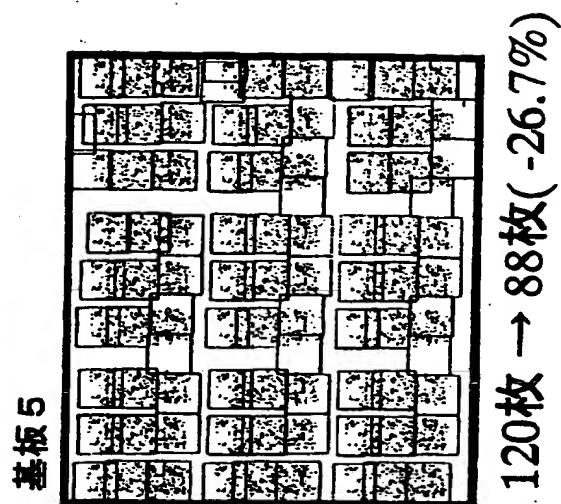 基板5
120枚 → 88枚( -26.7%)